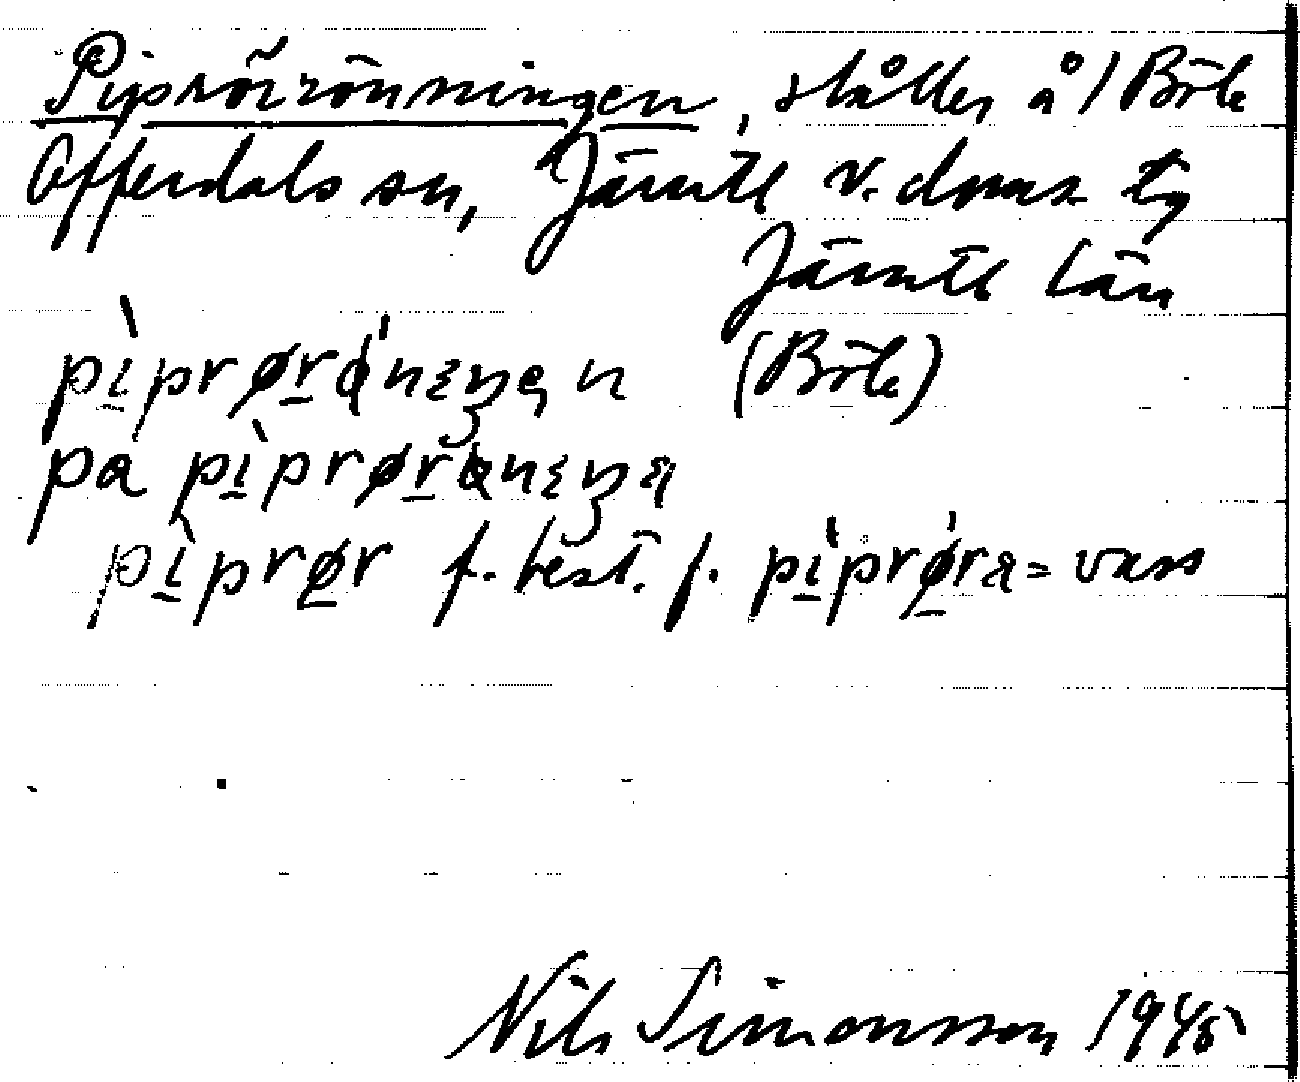 Piprörrönningen, slåtter å) Böle
Offerdals sn, Jämtl v. doms tg
Jämtl län
pìprørǿnıŋen (Böle)
pa pìprørønıŋa
pìprør f. best. f. pìprǿra = vass
Nils Simonsson 1945